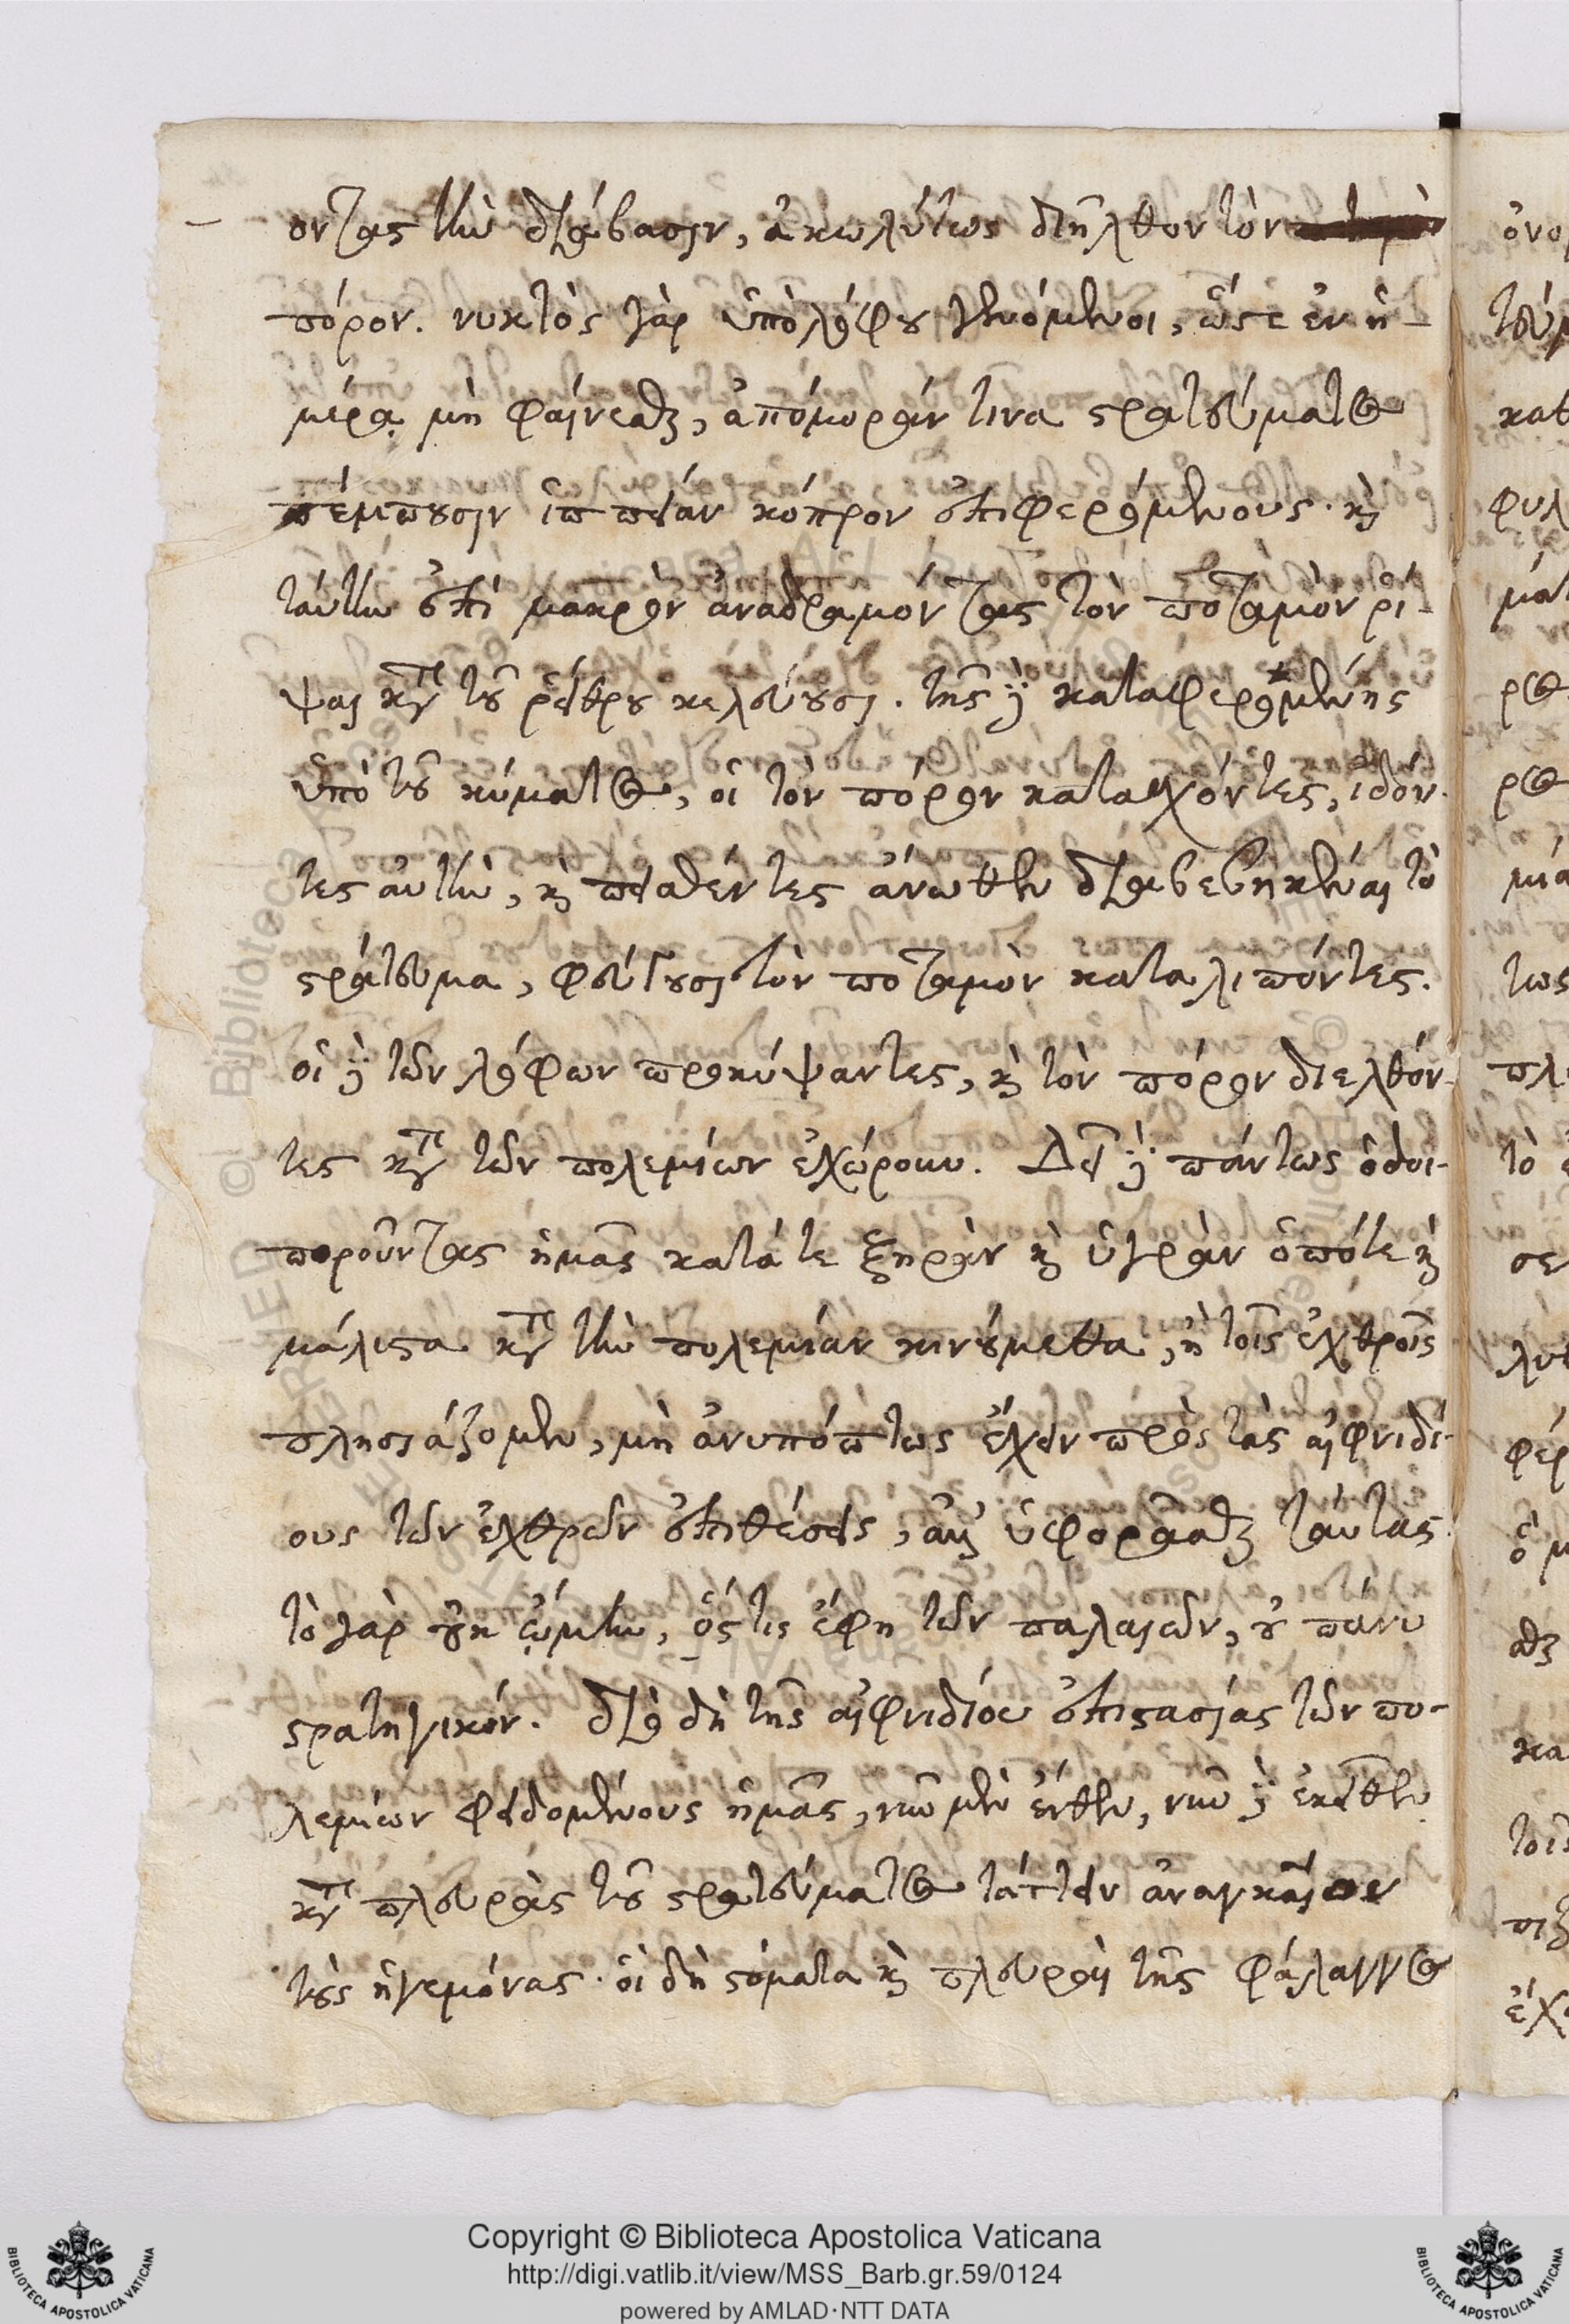 οντας τὴν διάβασιν, ἀκωλύτως διῆλθον τὸν
πόρον. νυκτὸς γὰρ ὑπὸ λόφου γενόμενοι, ὥστε ἐν ἡ-
μέρᾳ μὴ φαίνεσθαι, ἀπόμοιράν τινα στρατεύματος
πέμπουσιν ἱππείαν κόπρον ἐπιφερομένους. καὶ
ταύτην ἐπὶ μακρὸν ἀναδραμόντας τὸν ποταμὸν ῥί-
ψαι κατὰ τοῦ ῥείθρου κελεύουσι. τῆς δὲ καταφερομένης
ὑπὸ τοῦ κύματος, οἱ τὸν πόρον κατασχόντες, ἰδόν-
τες αὐτὴν, καὶ πεισθέντες ἄνωθεν διαβεβηκέναι τὸ
στράτευμα, φεύγουσι τὸν ποταμὸν καταλιπόντες.
οἱ δὲ τῶν λόφων προκύψαντες, καὶ τὸν πόρον διελθόν-
τες κατὰ τῶν πολεμίων ἐχώρουν. Δεῖ δὲ πάντως ὁδοι-
πορoῦντας ἡμᾶς κατά τε ξηρὰν καὶ ὑγρὰν ὁπότε καὶ
μάλιστα κατὰ τὴν πολεμίαν κινούμεθα, ἢ τοῖς ἐχθροῖς
πλησιάζομεν, μὴ ἀνυπόπτως ἔχειν πρὸς τὰς αἰφνιδί-
ους τῶν ἐχθρῶν ἐπιθέσεις, ἀλλ' ὑφορᾶσθαι ταύτας.
τὸ γὰρ οὐκ ᾠόμην, ὅς τις ἔφη τῶν παλαιῶν, οὐ πάνυ
στρατηγικόν. διὸ δὴ τῆς αἰφνιδίου ἐπιστασίας τῶν πο-
λεμίων φειδομένους ἡμᾶς, νῦν μὲν ἔνθεν, νῦν δὲ ἐκεῖθεν
κατὰ πλευρὰς τοῦ στρατεύματος τάττειν ἀναγκαῖον
τοὺς ἡγεμόνας. οἱ δὴ στόματα καὶ πλευραὶ τῆς φάλαγγος
© Biblioteca
Copyright © Biblioteca Apostolica Vaticana
http://digi.vatlib.it/view/MSS_Barb.gr.59/0124
powered by AMLAD·NTT DATA
BIBLIOTECA APOSTOLICA VATICANA
BIBLIOTECA APOSTOLICA VATICANA